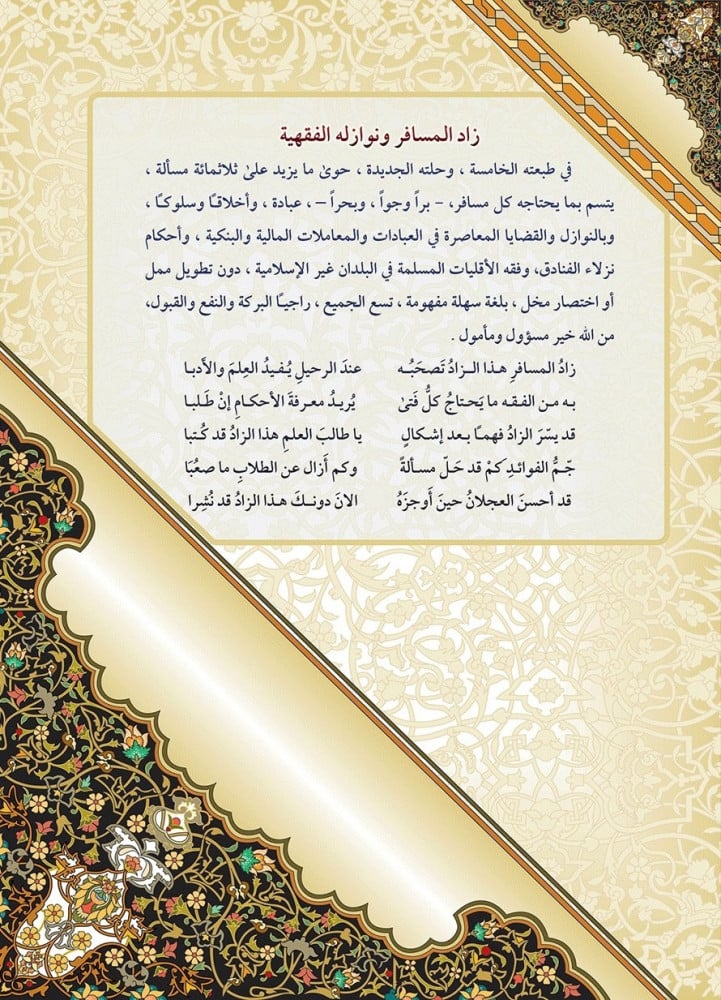 زاد المسافر ونوازله الفقهية
في طبعته الخامسة ، وحلته الجديدة ، حوىٰ ما يزيد علىٰ ثلاثمائة مسألة ،
يتسم بما يحتاجه كل مسافر، - براً وجواً ، وبحراً – ، عبادة ، وأخلاقًا وسلوكًا ،
وبالنوازل والقضايا المعاصرة في العبادات والمعاملات المالية والبنكية ، وأحكام
نزلاء الفنادق، وفقه الأقليات المسلمة في البلدان غير الإسلامية ، دون تطويل ممل
أو اختصار مخل ، بلغة سهلة مفهومة ، تسع الجميع ، راجيًا البركة والنفع والقبول،
من الله خير مسؤول ومأمول .
زادُ المسافرِ هذا الـزادُ تَصحَبُـه عندَ الرحيلِ يُفيدُ العِلمَ والأدبا
به من الفقه ما يَحتاجُ كلُّ فَتىٰ يُريدُ معرفةَ الأحكامِ إنْ طَلبا
قد يسّرَ الزادُ فهمًا بعد إشكالٍ يا طالبَ العلمِ هذا الزادُ قد كُتبا
جَمُّ الفوائدِ كمْ قد حَلّ مسألةً وكم أَزال عن الطلابِ ما صعُبَا
قد أحسنَ العجلانُ حينَ أَوجزَهُ الانَ دونـكَ هـذا الزادُ قد نُشِرا